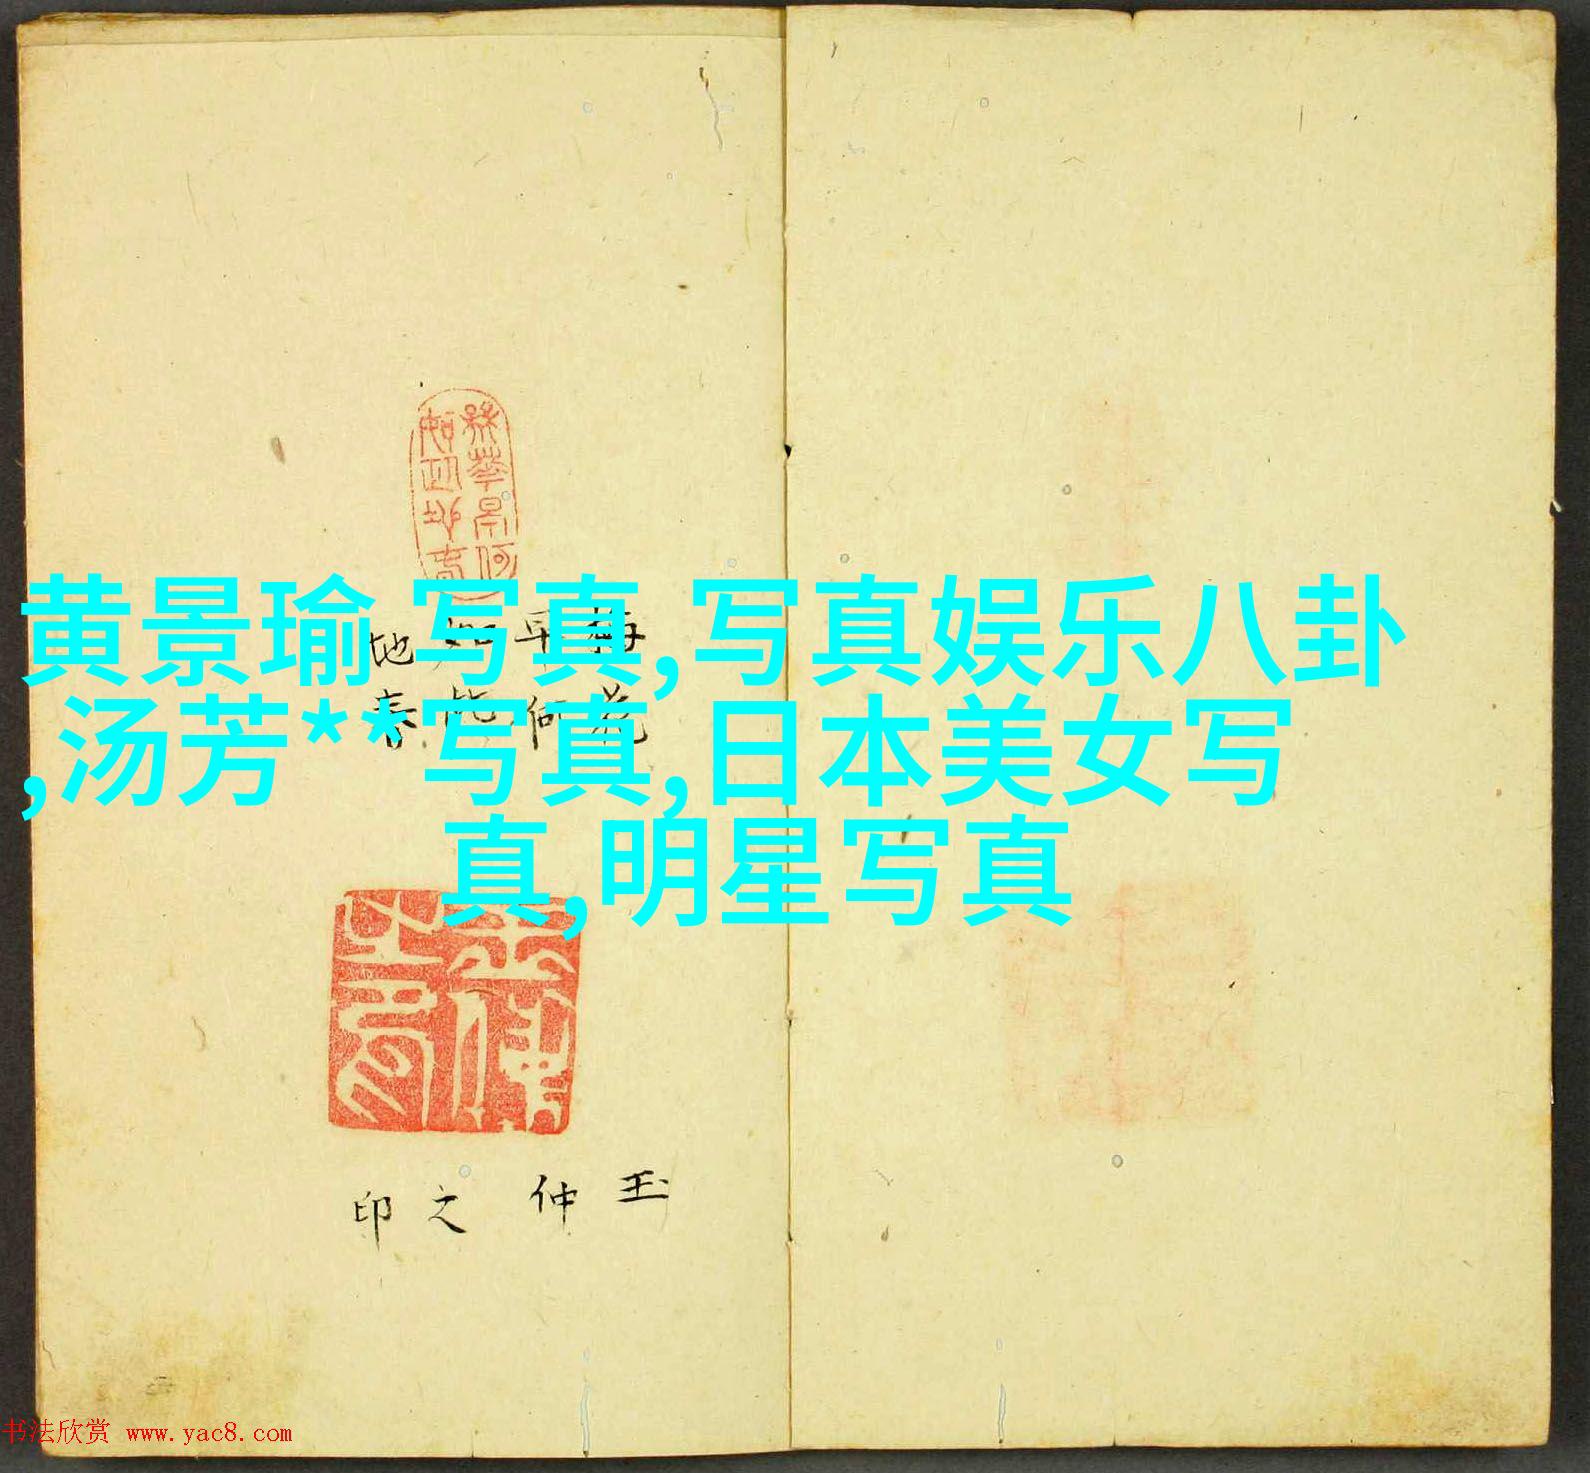 黄景瑜 写真,写真娱乐八卦
,汤芳**写真,日本美女写
真,明星写真
梅花
早何
如此
地春
玉仲之印
书法欣赏 www.yac8.com